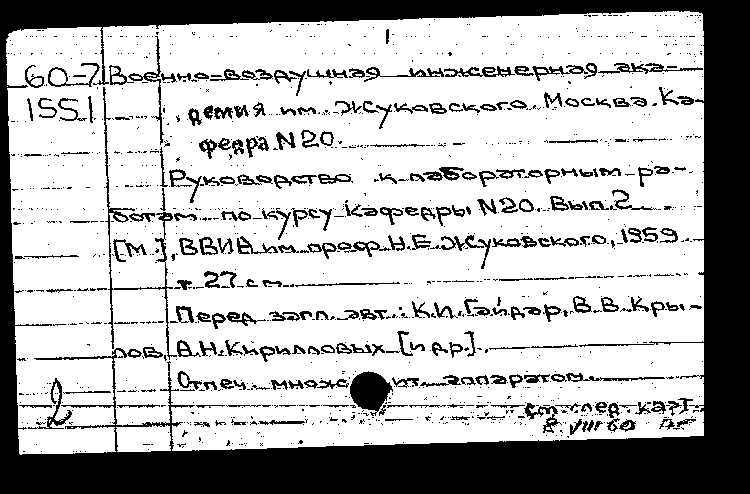 1
60-7 Военно-воздушная инженерная ака-
1551 демия им. Жуковского. Москва. Ка-
федра N20.
Руководство к лабораторным ра-
ботам по курсу Кафедры N20. Вып. 2
[М.], ВВИА им. проф. Н.Е. Жуковского, 1959
т. 27 см
Перед загл. авт.: К.И. Гайдар, В.В. Кры-
лов, А.Н. Кирилловых [и др.].
Отпеч. множ ит. аппаратом.
2 см. след. карт.
VIII 60